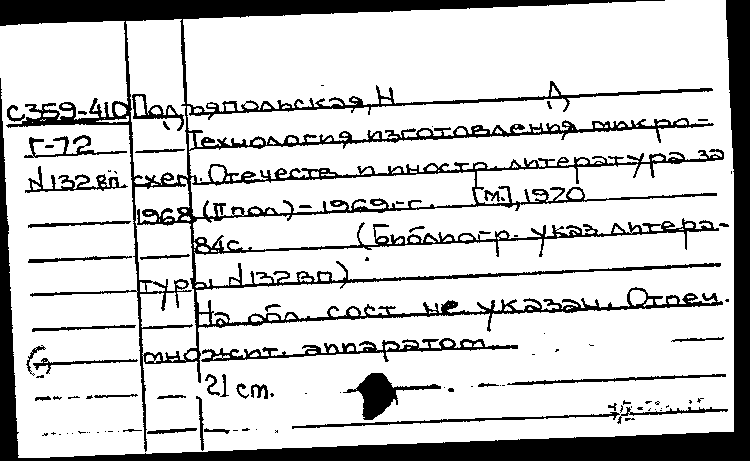 С359-410 Подъяпольская, Н Д
Г-72 Технология изготовления микро-
N132вп схем. Отечеств. и иностр. литература за
1968 (II пол) - 1969 г-г. [М.], 1970
84с. (Библиогр. указ. литера-
туры N132вп)
На обл. сост. не указан. Отпеч.
множит. аппаратом
21 cm.